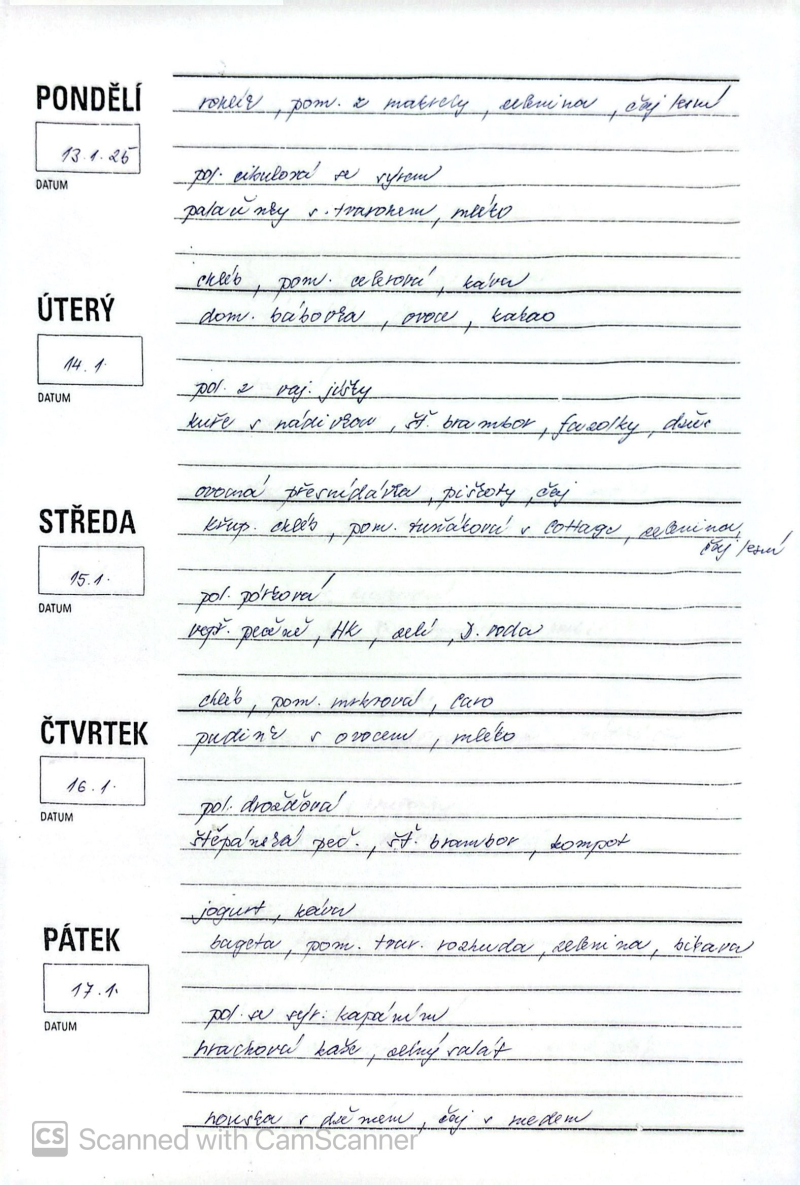 PONDĚLÍ
13.1.25
DATUM
rohlík, pom. z makrely, zelenina, čaj lesní
pol. cibulová se sýrem
palačinky s tvarohem, mléko
chléb, pom. celerová, káva
ÚTERÝ
14.1.
DATUM
dom. bábovka, ovoce, kakao
pol. z vaj. jíšky
kuře s nádivkou, šť. brambor, fazolky, džus
ovocná přesnídávka, piškoty, čaj
STŘEDA
15.1.
DATUM
křup. chléb, pom. tuňáková s cottage, zelenina,
čaj lesní
pol. pórková
vepř. pečeně, HK, zelí, D. voda
chléb, pom. mrkvová, caro
ČTVRTEK
16.1.
DATUM
puding s ovocem, mléko
pol. drožďová
štěpánská peč., šť. brambor, kompot
jogurt, káva
PÁTEK
17.1.
DATUM
bageta, pom. tvar. rozhuda, zelenina, bikava
pol. se sýr. kapáním
hrachová kaše, zelný salát
houska s džemem, čaj s medem
CS Scanned with CamScanner